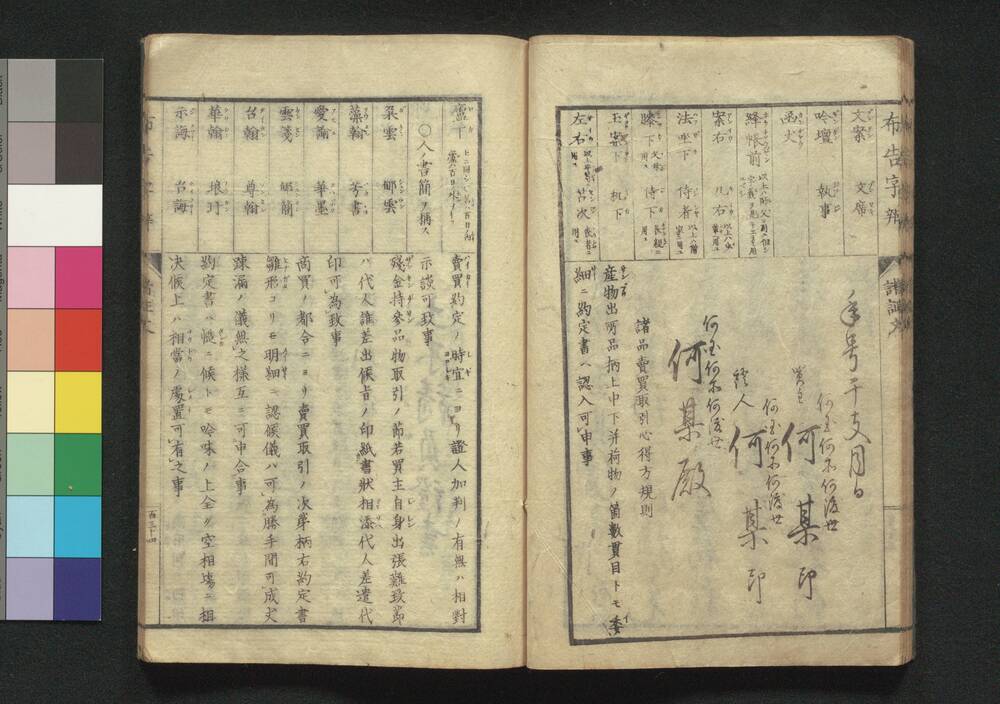 布告字辨
文案 文席
吟壇 執事
函丈
絳帳前
案右 几右
法坐下 侍者
膝下 侍下
玉案下 机下
左右
年号干支月日
何国何郡何渡世
買主 何某印
何国何郡何渡世
證人 何某印
何国何郡何渡世
何某殿
諸品賣買取引心得方規則
産物出所品柄上中下并荷物ノ箇數貫目トモ委
細ニ約定書ヘ認入可申事
〇人ノ書簡ヲ稱ス
朶雲 郇雲
藻翰 芳書
愛諭 華墨
雲箋 郇簡
台翰 尊翰
華翰 琅玕
示誨 台誨
賣買約定ノ時宜ニヨリ證人加判ノ有無ハ相對
示談可致事
殘金持參品物取引ノ節若買主自身出張難致節
ハ代人誰差出候旨ノ印紙書狀相添代人差遣代
印可為致事
商買ノ都合ニヨリ賣買取引ノ次第柄右約定書
雛形ヨリモ明細ニ認候儀ハ可為勝手間可成丈
踈漏ノ儀無之樣互ニ可申合事
約定書ハ慥ニ候トモ吟味ノ上全ク空相場ニ相
决候上ハ相當ノ處置可有之事
百三十四